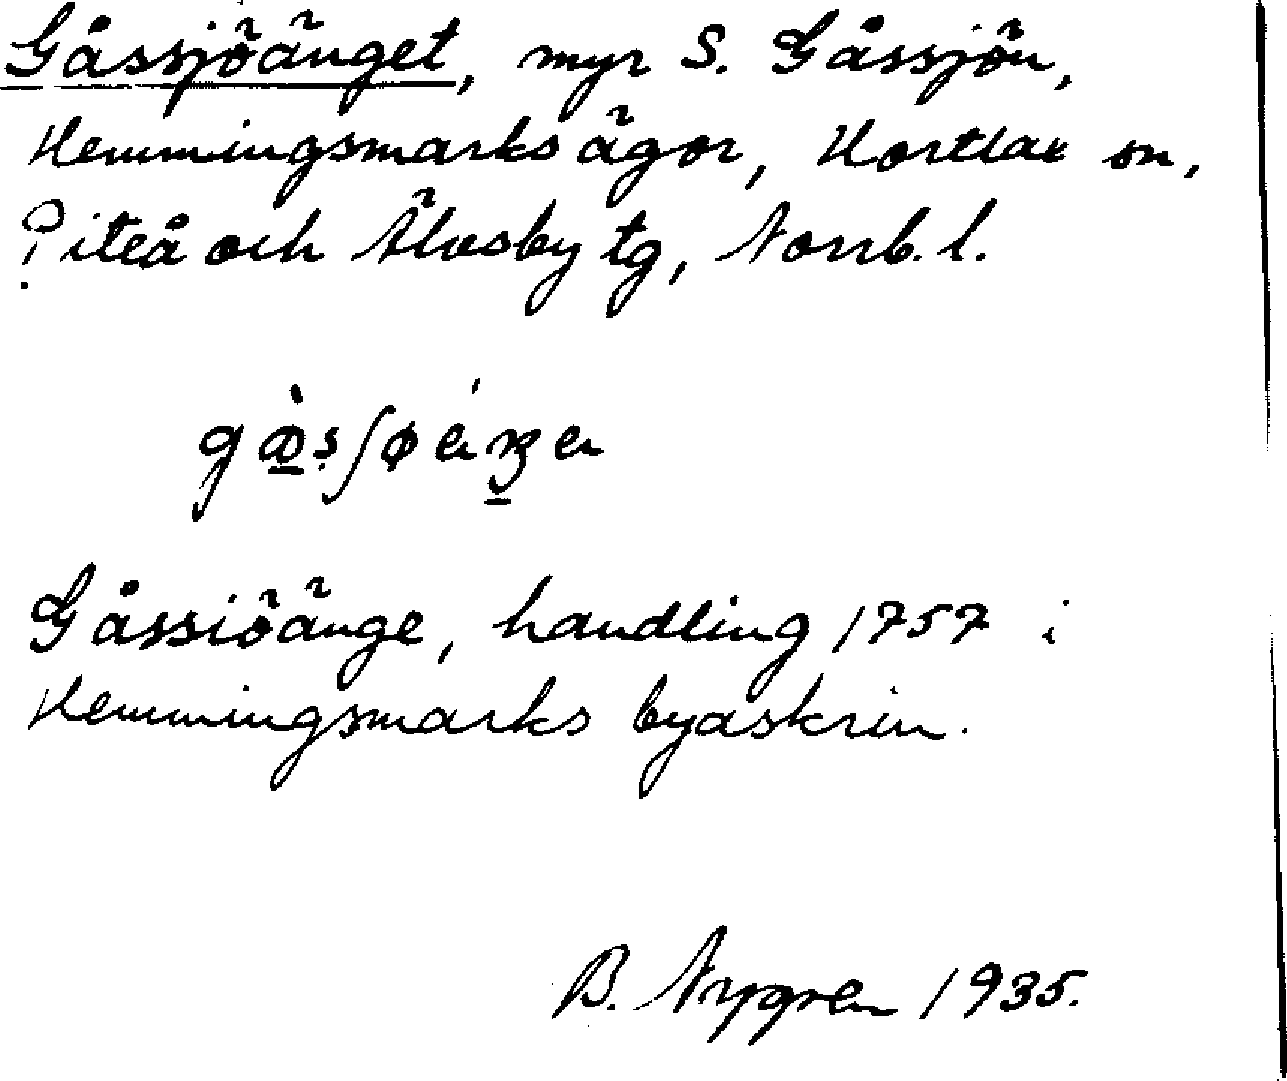 Gåssjöänget, myr S. Gåssjön,
Hemmingsmarks ägor, Hortlax sn,
Piteå och Älvsby tg, Norrb. l.
Gåssiöänge, handling 1757 i
Hemmingsmarks byaskrin.
B. Nygren 1935.